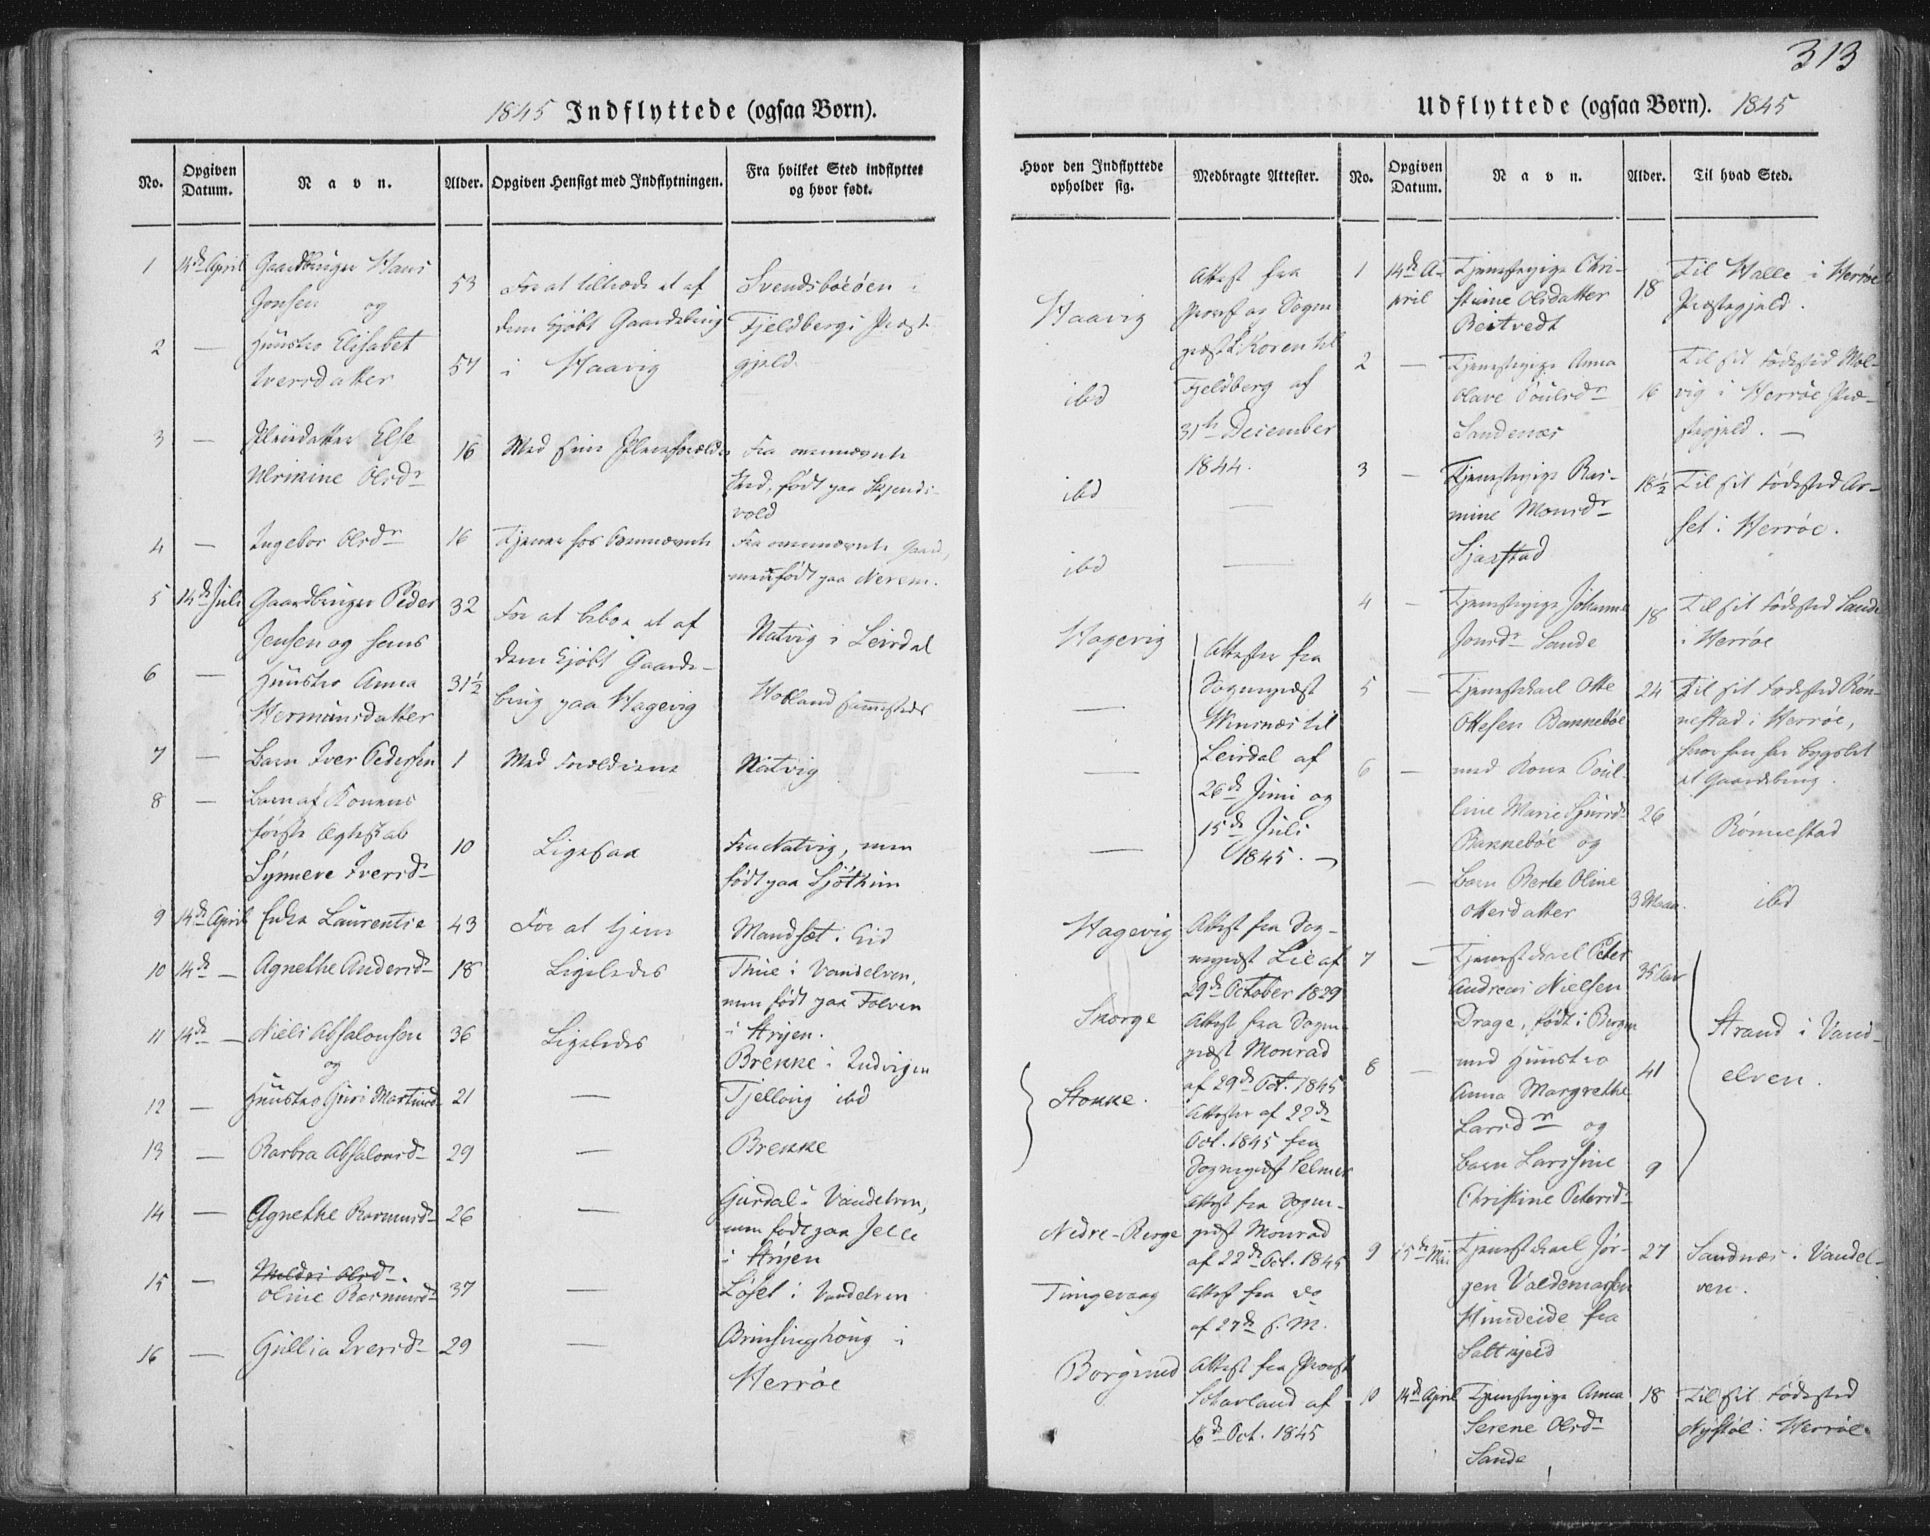 313
1845 Indflyttede (ogsaa Børn).
No. Opgiven Datum. Navn. Alder. Opgiven Hensigt med Indflytningen. Fra hvilket Sted indflyttet og hvor født.
Hvor den Indflyttede opholder sig. Medbragte Attester.
1 14de April Gaardbruger Hans
Jonsen og
53
For at tiltræde et af
dem kjøbt Gaardsbrug
i Haavig
Svendsbøeøen i
Fjeldbergs Præste-
gjeld.
Haavig
Attest fra
Provst og Sogne-
præst Koren til
Fjeldberg af
31th December
1844.
2 — Huustro Elisabet
Iversdatter
57
ibd
3 — Pleiedatter Else
Ulrikine Olsdr
16
Med sine Pleieforældre
Fra ovennævnte
Sted, født paa Skjends-
vold
ibd —
4 — Ingebor Olsdr
16
Tjener hos Ovennævnte
Fra ovennævnte Gaard,
men født paa Nerem.
ibd —
5 14de Juli Gaardbruger Peder
Jensen og hans
32
For at beboe et af
dem kjøbt Gaards-
brug paa Hagevig
Natvig i Leirdal
Hagevig
Attester fra
Sognepræst
til
Leirdal af
26de Juni og
15de Juli
1845. —
6 — Huustro Anna
Hermundsdatter
31½
Holland sammesteds
—
7 — Barn Iver Pedersen 1
Med Forældrene
Natvig
—
8 — Barn af Konens
første Ægteskab
Synneve Iversdr
10
Ligesaa
Fra Natvig, men
født paa
—
9 14de April Enke Laurentse 43
For at tjene
Mandsæt i Eid
Hagevig
Attest fra Sog-
nepræst Lie af
29de October 1829
10 14de — Agnethe Andersdr 18
Ligeledes
Thue i Vandelven,
men født paa Folven
i Stryen.
Skorge
Attest fra Sogne-
præst Monrad
af 29de Oct. 1845
11 14de — Niels Absalonsen
og
36
Ligeledes
Brekke i Indvigen
Stokke.
Attester af 22de
Oct. 1845 fra
Sognepræst Selmer
12 — Huustro Guri Martinsdr 21
—
Tjellvig ibd
13 — Barbra Absalonsdr 29
—
Brekke
14 — Agnethe Rasmusdr 26
—
i Vandelven,
men født paa
i Stryen
Nedre-Berge
Attest fra Sogne-
præst Monrad
af 22de Oct. 1845
15 — Oline Rasmusdr 37
—
Løset i Vandelven
Tungevaag
Attest fra do
af 27de s. M.
16 — Gullia Iversdr 29
—
Brinsinghoug i
Herrøe
Borgund
Attest fra Provst
af
16de Oct. 1845
Udflyttede (ogsaa Børn). 1845
No. Opgiven Datum. Navn. Alder. Til hvad Sted.
1 14de A-
pril
Tjenestepige Chri-
stine Olsdatter
Beitvedt
18
Til Halle i Herrøe
Præstegjeld.
2 — Tjenestepige Anna
Olave Poulsdr
Sandenæs
16
Til sit Fødested Mol-
vig i Herrøe Præ-
stegjeld. —
3 — Tjenestepige Ras-
mine Monsdr
Sjastad
18½
Til sit Fødested Ar-
set i Herrøe.
4 — Tjenestepige Johanne
Jonsdr Sande
18
Til sit Fødested Sande
i Herrøe
5 — Tjenestekarl Otte
Ottesen Bannebøe
24
Til sit Fødested Røn-
nestad i Herrøe,
hvor han har bygslet
et Gaardsbrug.
6 — med Kone Poul-
ine Marie Sjursdr
Bannebøe og
26
Rønnestad
— Barn Berte Oline
Ottersdatter
3 Maan.
ibd
7 — Tjenestekarl Peter
Andreas Nielsen
Drage, født i Bergen
35 Aar
Strand i Vand-
elven.
8 — med Huustro
Anna Margrethe
Larsdr og
41
Barn Larssine
Christine Petersdr
9
9 15de Mai Tjenestekarl Jør-
gen Valdemarsen
Hundeide fra
Saltkjeld
27
Sandnæs i Vandel-
ven.
10 14de April Tjenestepige Anna
Serene Olsdr
Sande
18
Til sit Fødested
Nystøl i Herrøe.